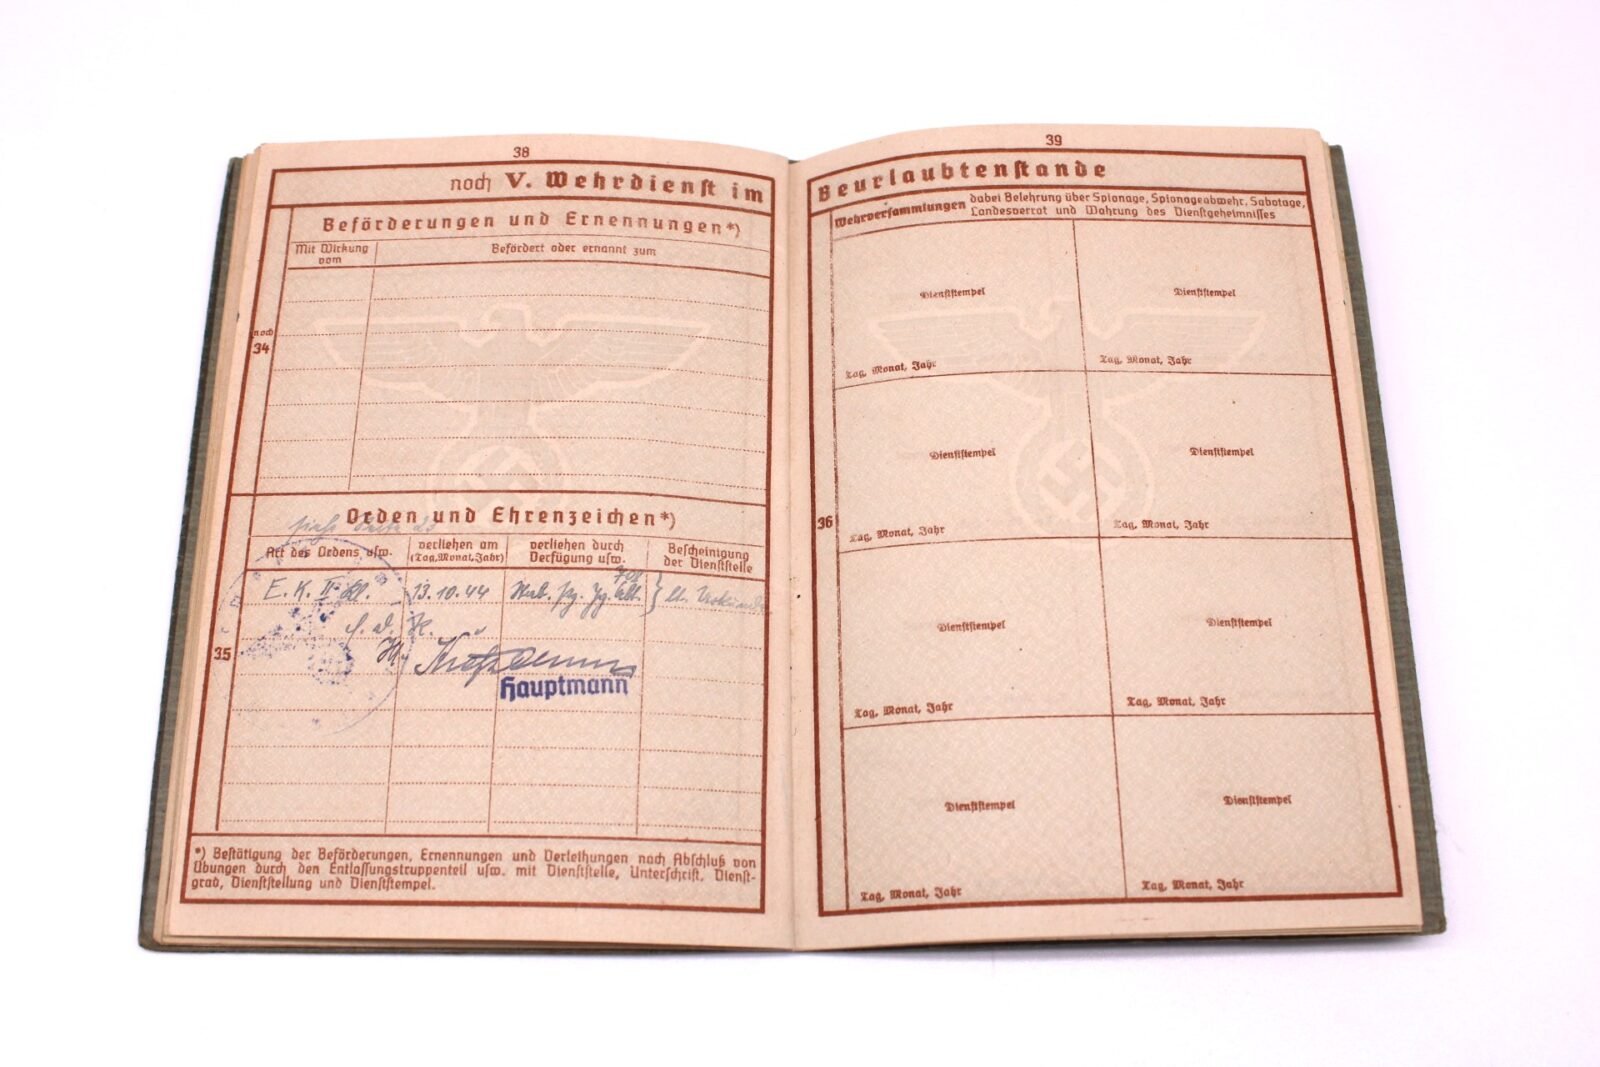 38
noch V. Wehrdienst im
Beförderungen und Ernennungen*)
Mit Wirkung vom
Befördert oder ernannt zum
noch
34
Orden und Ehrenzeichen*)
Art des Ordens usw.
verliehen am
(Tag, Monat, Jahr)
verliehen durch
Verfügung usw.
Bescheinigung
der Dienststelle
E. K. II Kl.
13.10.44
35
Hauptmann
*) Bestätigung der Beförderungen, Ernennungen und Verleihungen nach Abschluß von
Übungen durch den Entlassungstruppenteil usw. mit Dienststelle, Unterschrift, Dienst-
grad, Dienststellung und Dienststempel.
39
Beurlaubtenstande
Wehrversammlungen dabei Belehrung über Spionage, Spionageabwehr, Sabotage,
Landesverrat und Wahrung des Dienstgeheimnisses
Dienststempel
Dienststempel
Tag, Monat, Jahr
Tag, Monat, Jahr
Dienststempel
Dienststempel
36
Tag, Monat, Jahr
Tag, Monat, Jahr
Dienststempel
Dienststempel
Tag, Monat, Jahr
Tag, Monat, Jahr
Dienststempel
Dienststempel
Tag, Monat, Jahr
Tag, Monat, Jahr